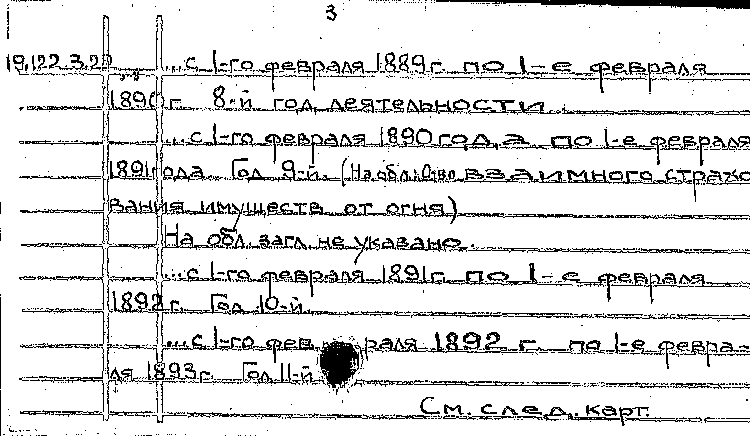 3
19.122.3.22 ...с 1-го февраля 1889г. по 1-е февраля
1890г. 8-й год деятельности.
...с 1-го февраля 1890года по 1-е февраля
1891года. Год 9-й. (На обл.: О-во взаимного страхо
вания имуществ от огня)
На обл. загл. не указано.
...с 1-го февраля 1891г. по 1-е февраля
1892г. Год 10-й.
...с 1-го фев раля 1892 г. по 1-е февра-
ля 1893г. Год 11-й
См. след. карт.